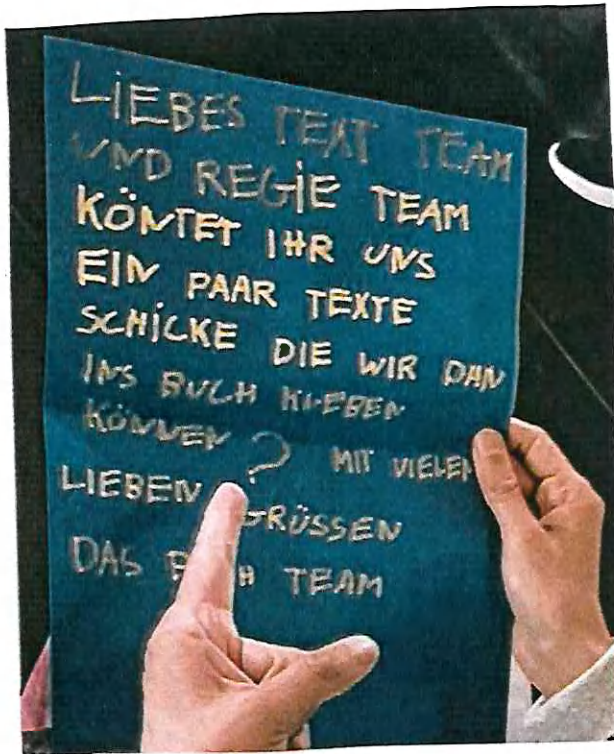 LiEBES TEXT TEAM
UND REGiE TEAM
KÖNTET IHR UNS
EIN PAAR TEXTE
SCHiCKE DIE WIR DAN
INS BUCH KLEBEN
KÖNNEN? MIT VIELEN
LIEBEN GRÜSSEN
DAS TEAM